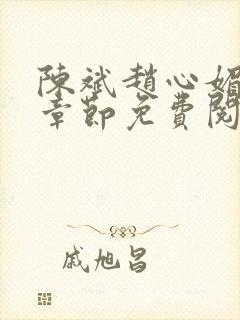 陳斌趙心媚
章節免費閱
戚旭昌